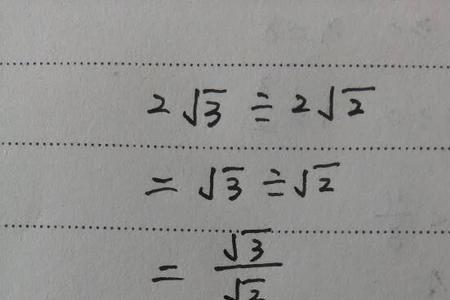 2√3 ÷ 2√2
= √3 ÷ √2
= √3/√2